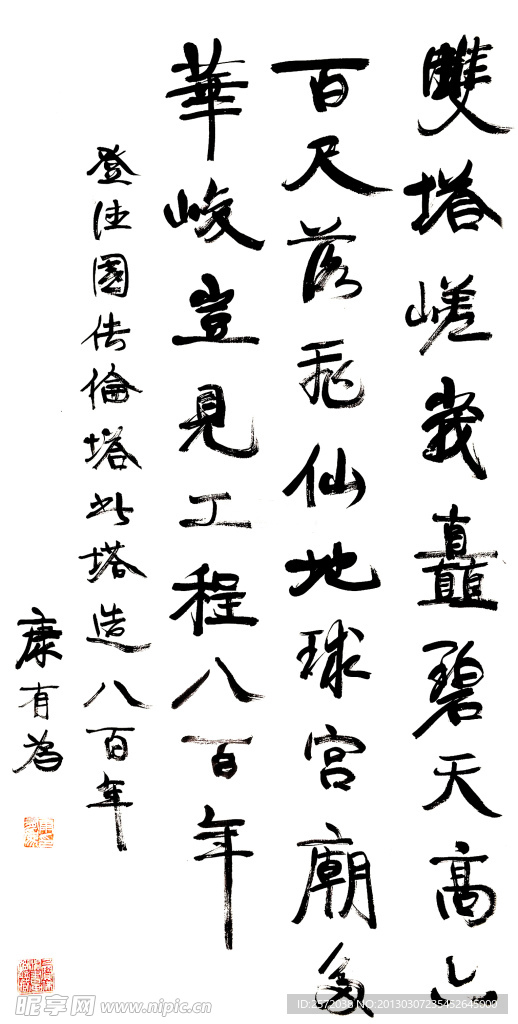 雙塔嵯峩矗碧天高山
百尺落飛仙地球宮廟多
華峻豈見工程八百年
登德國傳倫塔此塔造八百年
康有為
昵享网 www.nipic.cn
ID:2572038 NO:20130307235452645000